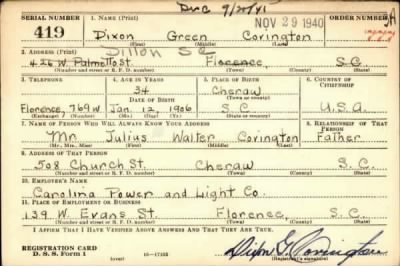 Dis 9/21/45
SERIAL NUMBER 1. NAME (Print) NOV 29 1940 ORDER NUMBER
419 Dixon Green Covington
(First) (Middle) (Last)
Dillon S C
2. ADDRESS (Print)
426 W. Palmetto St. Florence, S.C.
(Number and street or R. F. D. number) (Town) (County) (State)
3. TELEPHONE 4. AGE IN YEARS 5. PLACE OF BIRTH 6. COUNTRY OF CITIZENSHIP
34 Cheraw
DATE OF BIRTH (Town or county)
Florence, 769W Jan. 2 1906 S C U.S.A.
(Exchange) (Number) (Mo.) (Day) (Yr.) (State or country)
7. NAME OF PERSON WHO WILL ALWAYS KNOW YOUR ADDRESS 8. RELATIONSHIP OF THAT PERSON
Mr. Julius Walter Covington Father
(Mr., Mrs., Miss) (First) (Middle) (Last)
9. ADDRESS OF THAT PERSON
508 Church St. Cheraw S.C.
(Number and street or R. F. D. number) (Town) (County) (State)
10. EMPLOYER'S NAME
Carolina Power and Light Co.
11. PLACE OF EMPLOYMENT OR BUSINESS
139 W. Evans St. Florence, S.C.
(Number and street or R. F. D. number) (Town) (County) (State)
I AFFIRM THAT I HAVE VERIFIED ABOVE ANSWERS AND THAT THEY ARE TRUE.
REGISTRATION CARD
D. S. S. Form 1 (over) 16—17105 Dixon G. Covington
(Registrant's signature)